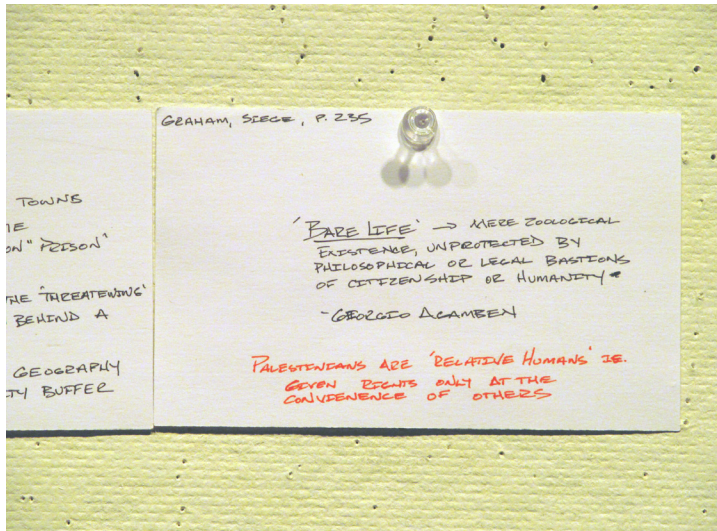 TOWNS
ON" PRISON'
THE 'THREATENING'
BEHIND A
GEOGRAPHY
ITY BUFFER
GRAHAM, SIEGE, P. 235
'BARE LIFE' → MERE ZOOLOGICAL
EXISTENCE, UNPROTECTED BY
PHILOSOPHICAL OR LEGAL BASTIONS
OF CITIZENSHIP OR HUMANITY
-GEORGIO AGAMBEN
PALESTINIANS ARE 'RELATIVE HUMANS' IE.
GIVEN RIGHTS ONLY AT THE
CONVIENENCE OF OTHERS